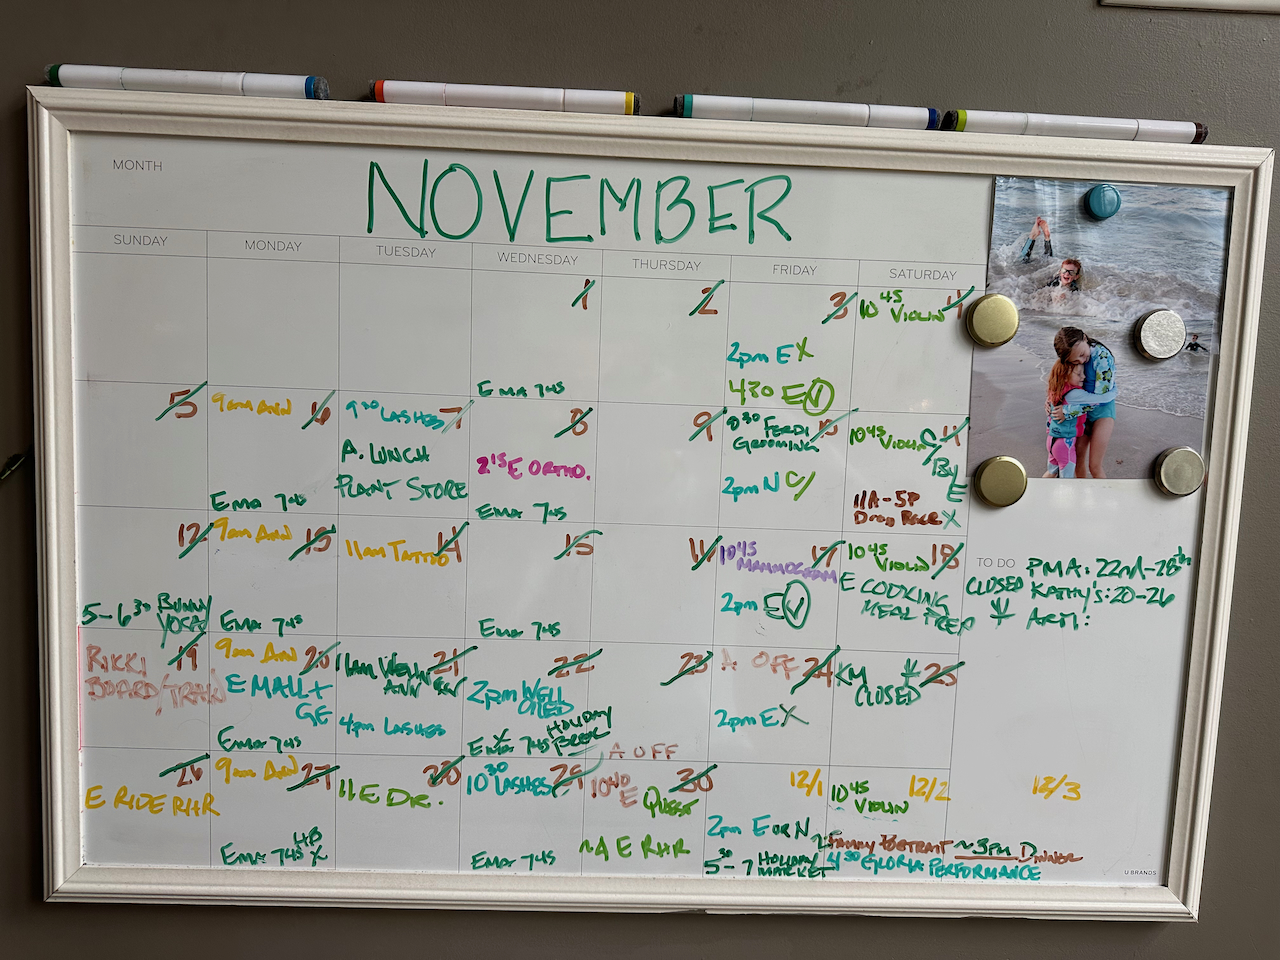 MONTH
NOVEMBER
SUNDAY MONDAY TUESDAY WEDNESDAY THURSDAY FRIDAY SATURDAY
1
EMA 745
2
3
2pm E X
430 E
4
10 45
VIOLIN
5
9am ANN 6
EMA 7 45
9 30 LASHES 7
A. LUNCH
PLANT STORE
8
2 15 E ORTHO.
EMA 745
9
8 30 FERDI
GROOMING
2pm N C/
10 45 VIOLIN 11
11A-5P
X
12
5-6 30 BUNNY
YOGA
9am ANN 13
EMA 7 45
11am TATTOO 14
15
EMA 745
10 45 17
MAMMOGRAM
2pm E
10 45 18
VIOLIN
E COOKING
MEAL PREP
TO DO
CLOSED
PMA: 22nd-28th
KATHY'S: 20-26
ARM:
RIKKI 19
BOARD/TRAIN
9am ANN 20
E MALL +
GE
EMA 745
11am 21
ANN
4pm LASHES
22
2pm WELL
OILED
EMA X 745 HOLIDAY
BEER
23
A OFF 24
2pm E X
KM 25
CLOSED
26
E RIDE RHR
9am ANN 27
EMA 745 HB
X
11 E DR.
10 30 LASHES 29
EMA 745
A OFF
10 40 E 30
QUEST
~4 E RHR
12/1
2pm E OR N
5 30-7 HOLIDAY
MARKET
12/2
10 45
VIOLIN
FAMILY PORTRAIT ~3PM DINNER
4 30 GLORIA PERFORMANCE
12/3
U BRANDS